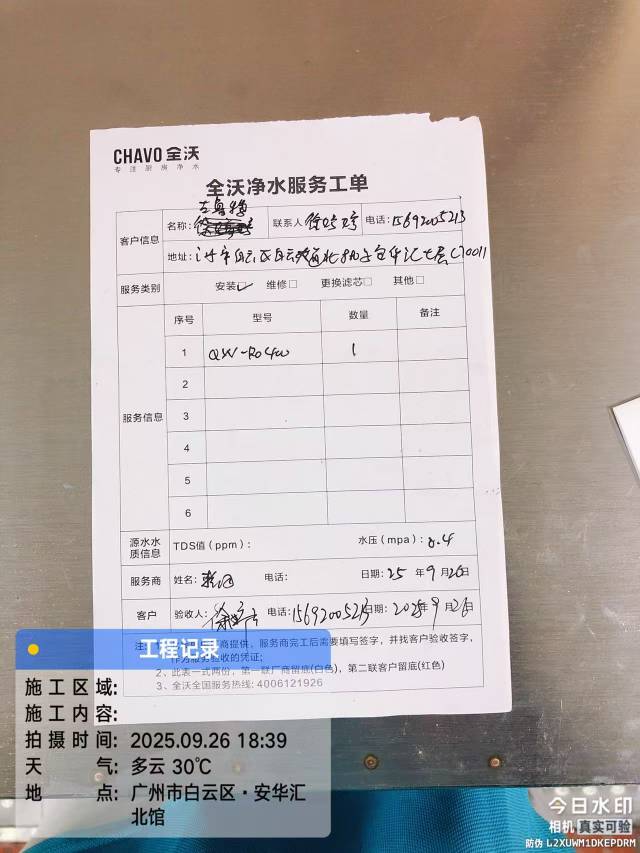 CHAVO 全沃
专注厨房净水
全沃净水服务工单
客户信息
名称:
联系人 徐 电话: 15692005213
地址: 市白云区白云大道北 安华汇七层C70011
服务类别 安装☑ 维修□ 更换滤芯□ 其他□
服务信息
序号 型号 数量 备注
1 QW-RO400 1
2
3
4
5
6
源水水质信息 TDS值(ppm): 水压(mpa): 0.4
服务商 姓名: 电话: 日期: 25年9月26日
客户 验收人: 徐 电话: 15692005213 日期: 2025年9月26
商提供,服务商完工后需要填写签字,并找客户验收签字,
作为服务验收的凭证;
2、此表一式两份,第一联厂商留底(白色),第二联客户留底(红色)
3、全沃全国服务热线: 4006121926
工程记录
施工区域:
施工内容:
拍摄时间: 2025.09.26 18:39
天气: 多云 30℃
地点: 广州市白云区·安华汇北馆
今日水印
相机 真实可验
防伪 L2XUWM1DKEPDRM